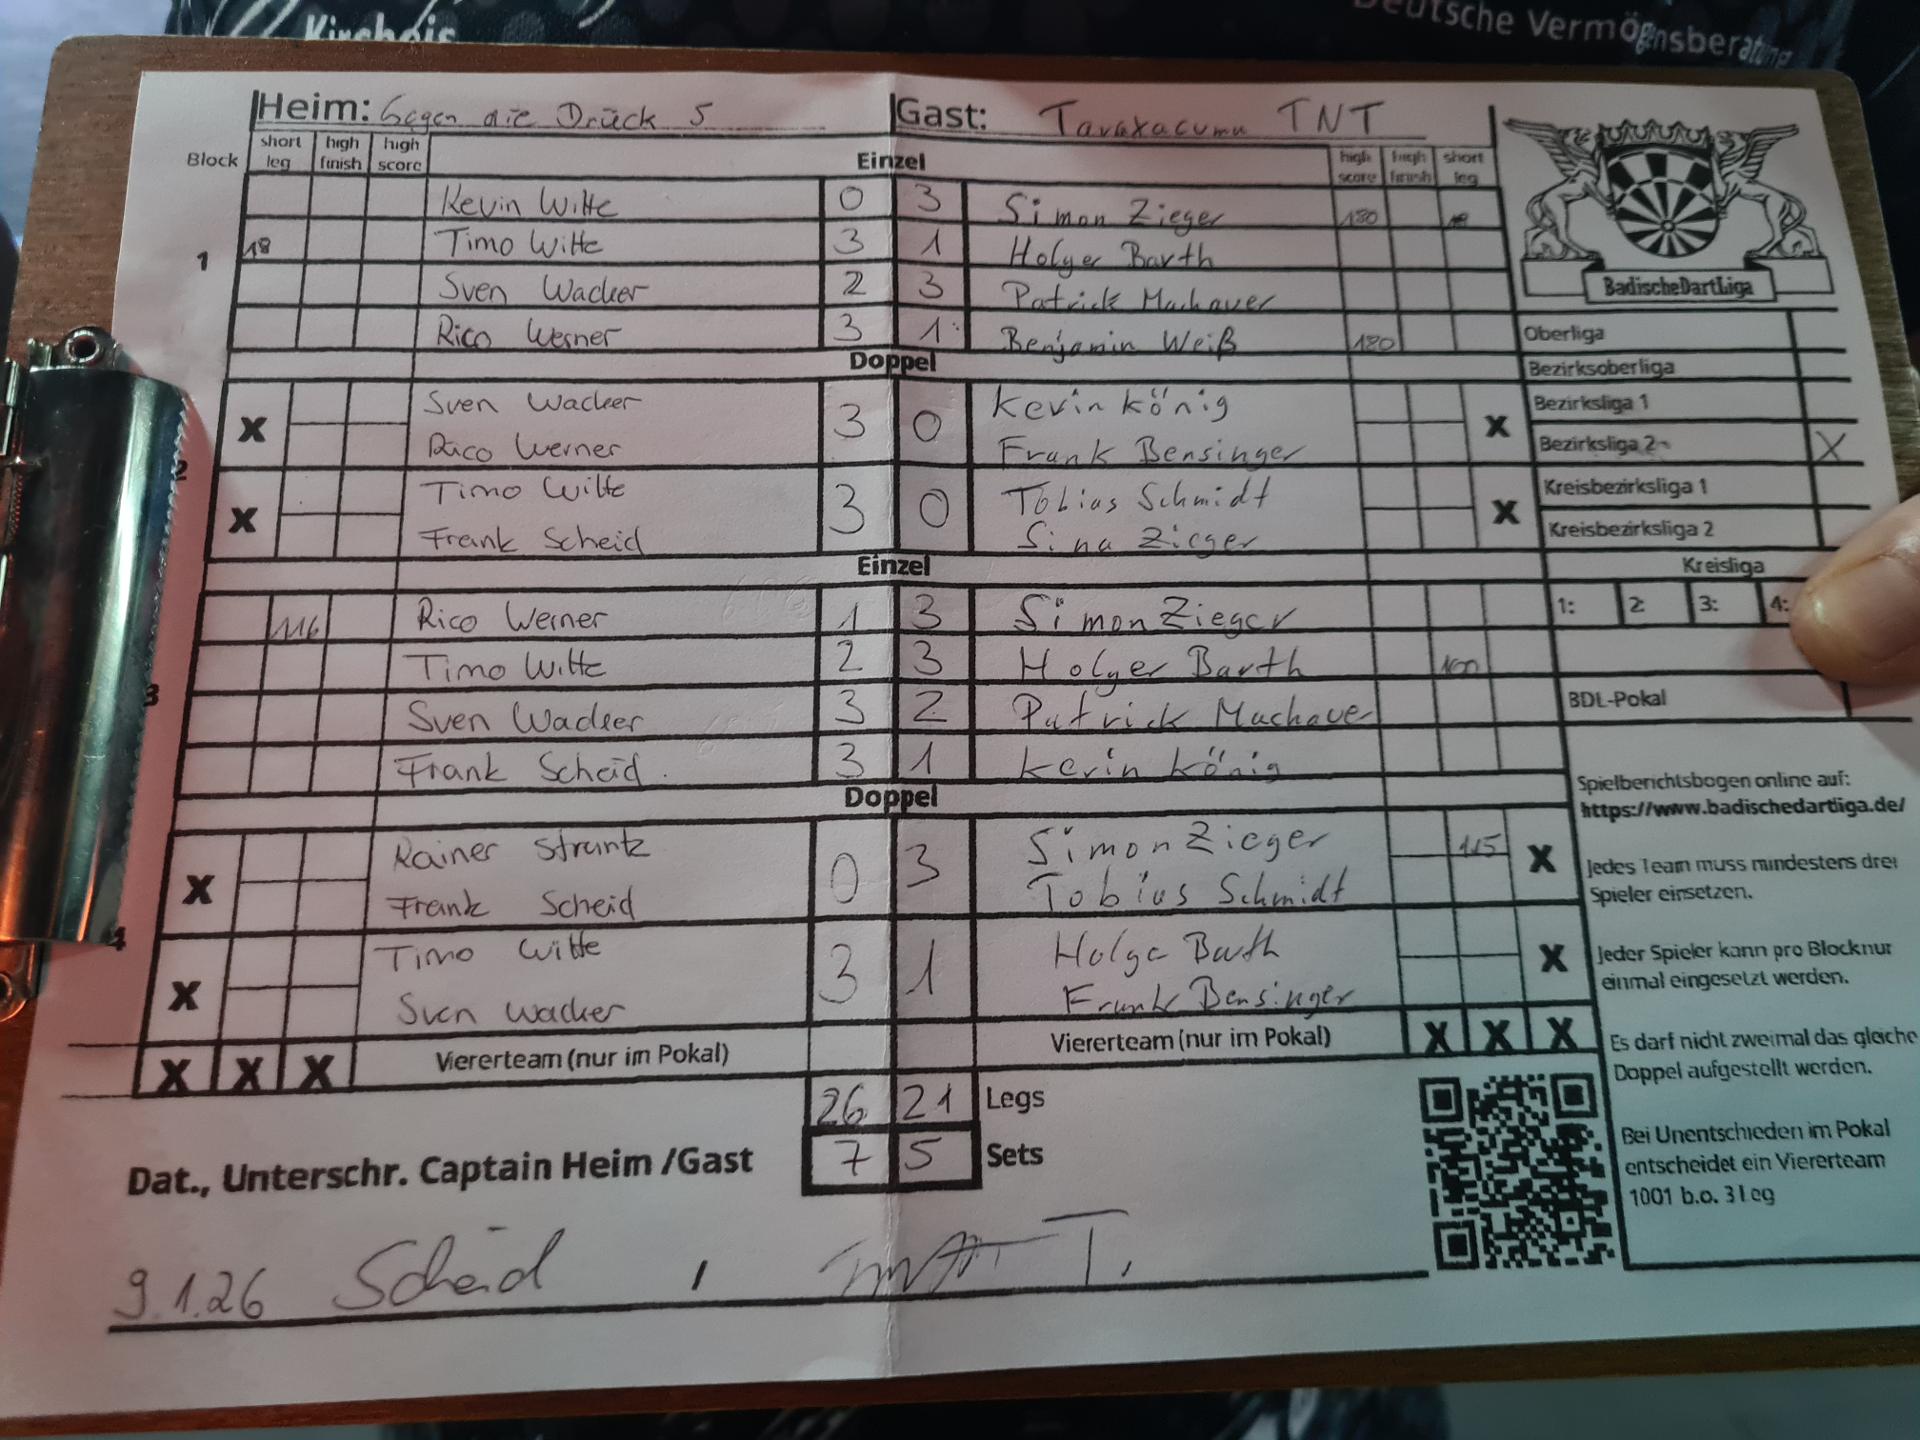 Kircheis
Deutsche Vermögensberatung
Heim: Gegen die Drück 5 Gast: Taraxacumu TNT
Block short leg high finish high score Einzel high score high finish short leg
Kevin Witte 0 3 Simon Zieger 180
1 18 Timo Witte 3 1 Holger Barth
Sven Wacker 2 3 Patrick Machauer
Rico Werner 3 1 Benjamin Weiß 180
Doppel
X Sven Wacker 3 0 Kevin König X
Rico Werner Frank Bensinger
2
X Timo Witte 3 0 Tobias Schmidt X
Frank Scheid Sina Zieger
Einzel
116 Rico Werner 1 3 Simon Zieger
Timo Witte 2 3 Holger Barth 100
3 Sven Wacker 3 2 Patrick Machauer
Frank Scheid 3 1 Kevin König
Doppel
X Rainer Struntz 0 3 Simon Zieger 115 X
Frank Scheid Tobius Schmidt
4
X Timo Witte 3 1 Holge Barth X
Sven Wacker Frank Bensinger
X X X Viererteam (nur im Pokal) Viererteam (nur im Pokal) X X X
26 21 Legs
7 5 Sets
Dat., Unterschr. Captain Heim /Gast
9.1.26 Scheid /
BadischeDartLiga
Oberliga
Bezirksoberliga
Bezirksliga 1
Bezirksliga 2 X
Kreisbezirksliga 1
Kreisbezirksliga 2
Kreisliga
1: 2: 3: 4:
BDL-Pokal
Spielberichtsbogen online auf:
https://www.badischedartliga.de/
Jedes Team muss mindestens drei
Spieler einsetzen.
Jeder Spieler kann pro Blocknur
einmal eingesetzt werden.
Es darf nicht zweimal das gleiche
Doppel aufgestellt werden.
Bei Unentschieden im Pokal
entscheidet ein Viererteam
1001 b.o. 3 Leg